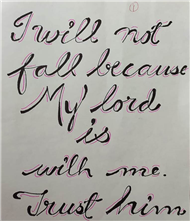 ①
I will not
fall because
My lord
is
with me.
Trust him